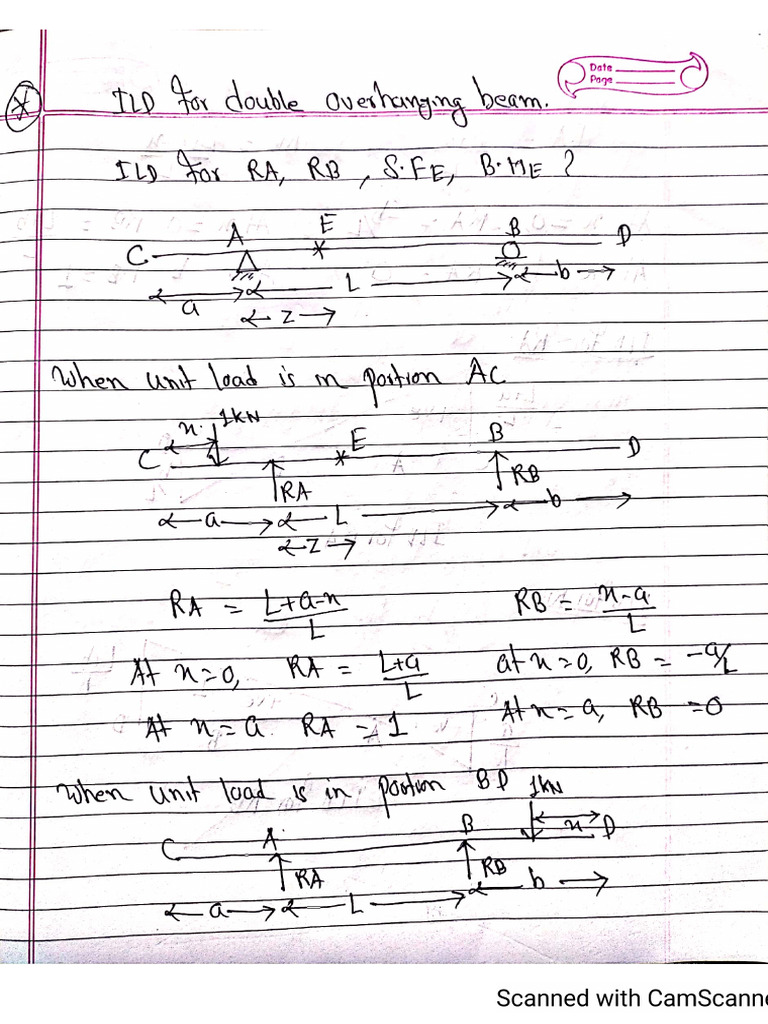 Date
Page
ILD for double overhanging beam.
ILD for RA, RB, S.FE, B.ME ?
C A E B D
a L b
z
When unit load is in portion AC
x 1kN
C E B D
RA RB
a L b
z
RA = L+a-x / L RB = x-a / L
At x=0, RA = L+a / L at x=0, RB = -a/L
At x=a RA = 1 At x=a, RB =0
When unit load is in portion BD 1kN
C A B x D
RA RB
a L b
Scanned with CamScanne